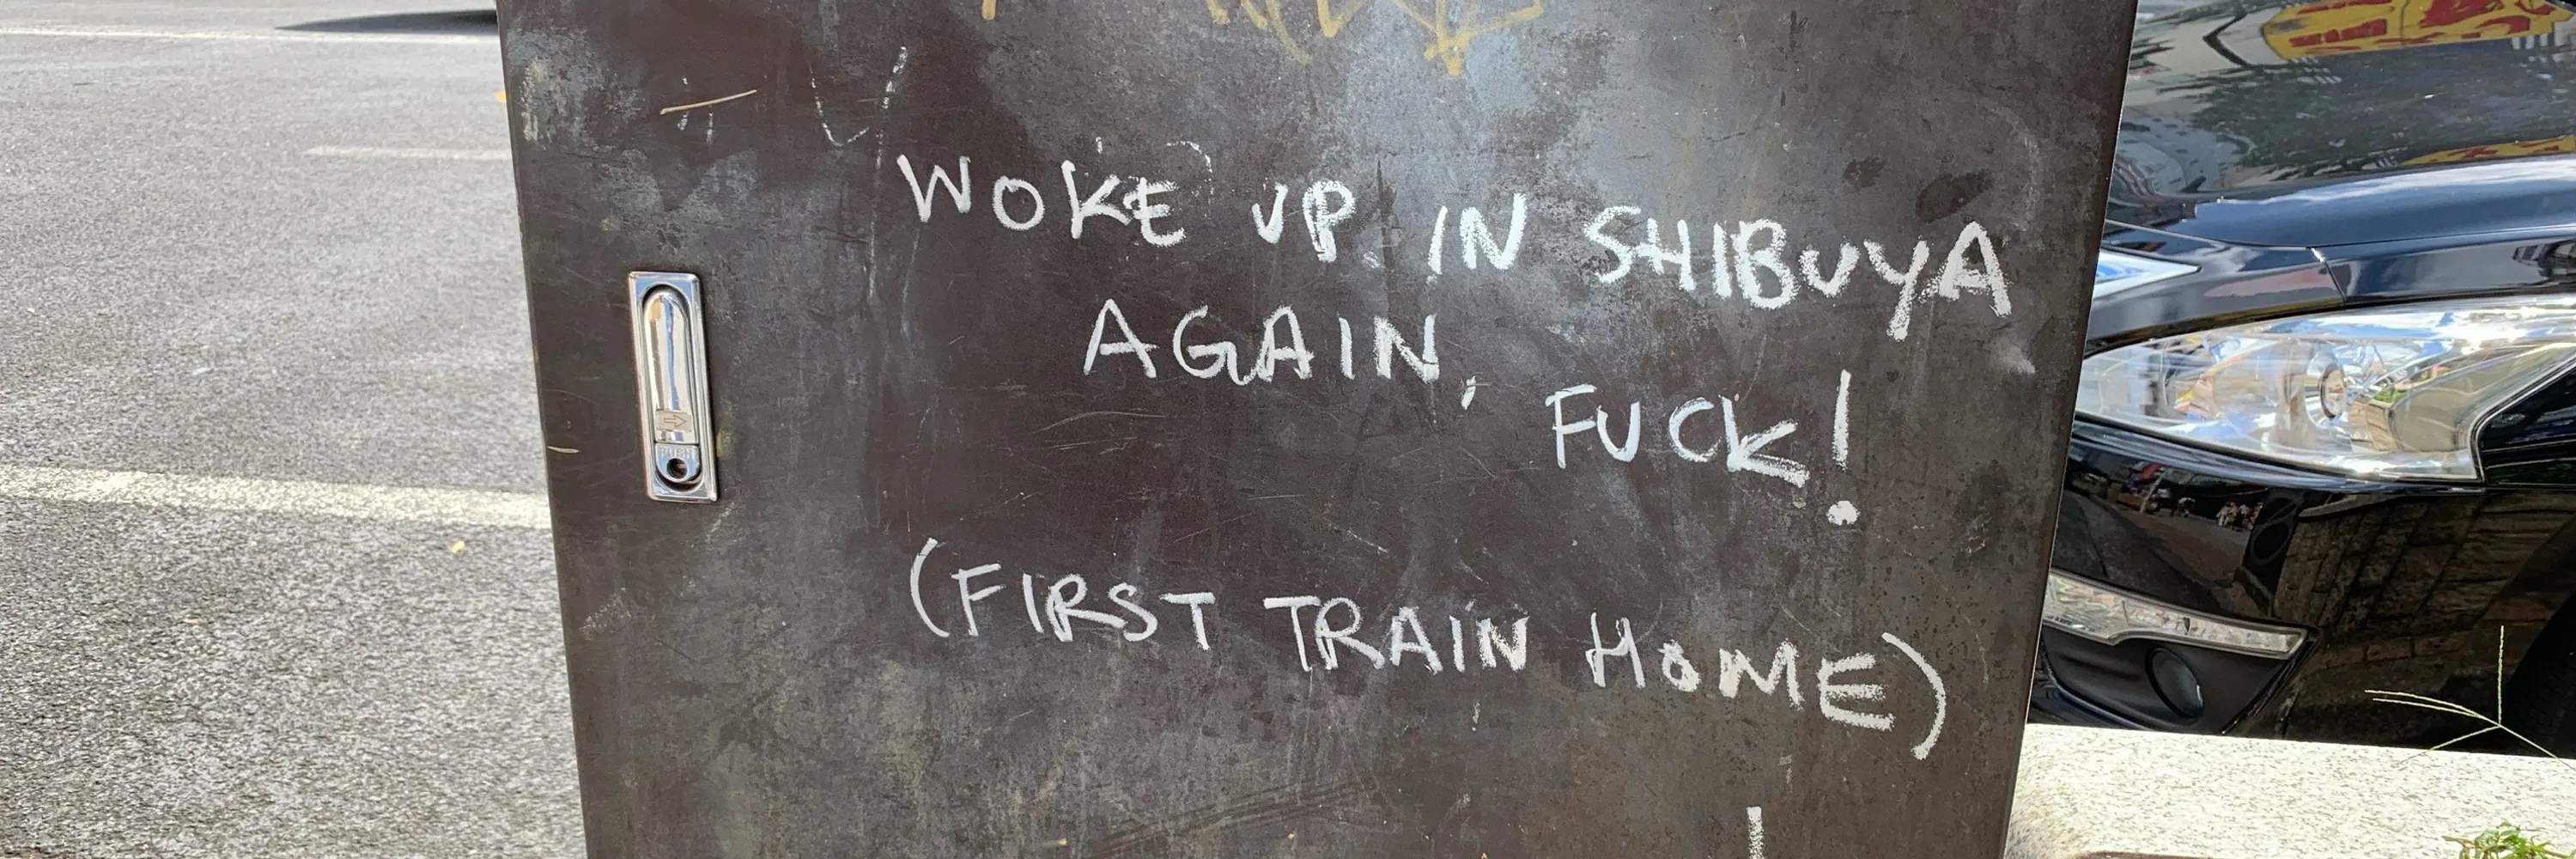 WOKE UP IN SHIBUYA
AGAIN, FUCK!
(FIRST TRAIN HOME)
PUSH